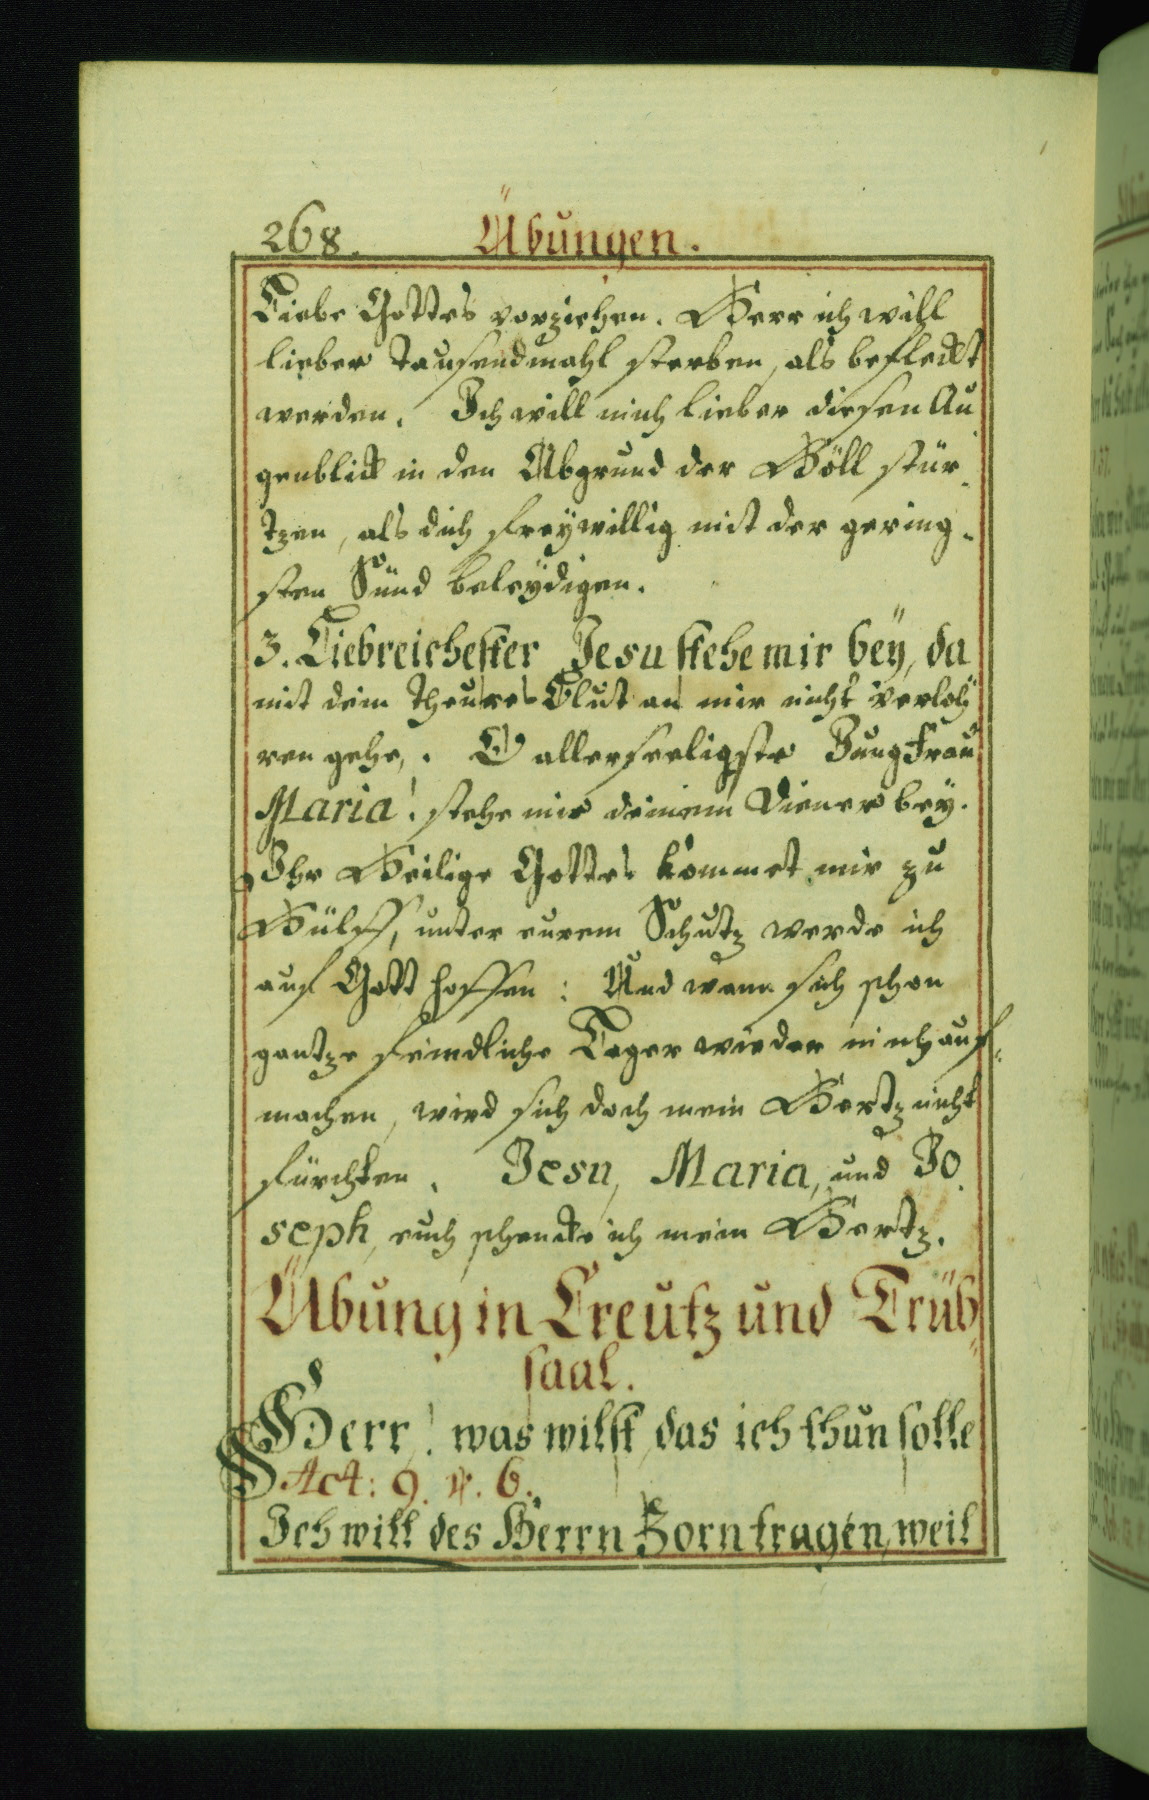 268. Übungen.
Liebe Gottes vorziehen. Herr ich will
lieber Tausendmahl sterben, als befleckt
werden. Ich will mich lieber diesen Au
genblick in den Abgrund der Höll stür-
tzen, als dich freÿwillig mit der gering-
sten Sünd beleÿdigen.
3. Liebreichester Jesu stehe mir beÿ, da
mit dein theures Blut an mir nicht verloh
ren gehe. O allerseeligste Jungfrau
Maria! stehe mir deinem Diener beÿ.
Ihr Heilige Gottes kommet mir zu
Hülff, unter eurem Schutz werde ich
auf Gott hoffen: Und wann sich schon
gantze feindliche Lager wieder mich auf-
machen, wird sich doch mein Hertz nicht
fürchten. Jesu, Maria, und Jo
seph, euch schencke ich mein Hertz.
Übung in Creutz und Trüb
saal.
Herr! was wilst, das ich thun solle
Act: 9. v. 6.
Ich will des Herrn Zorn tragen, weil